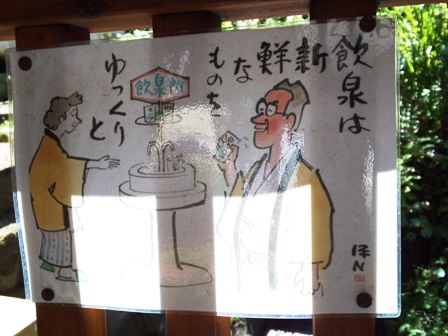 飲泉は
新鮮
な
ものを
ゆっくり
と
飲泉所